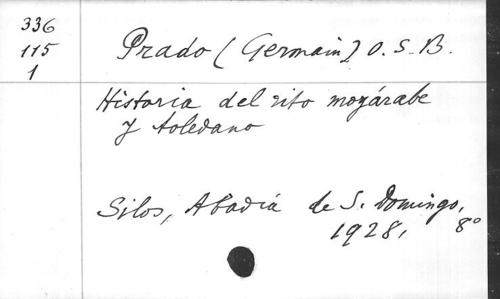 336
115
1
Prado (Germain) O.S.B.
Historia del rito mozárabe
y toledano
Silos, Abadía de S. Domingo,
1928, 8º